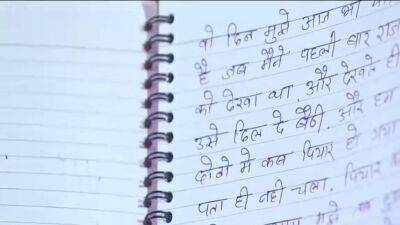 वो दिन मुझे आज भी
है जब मैने पहली बार राज
को देखा था, और देखते ही
उसे दिल दे बैठी, और हम
दोनो मे कब पियार हो गया
पता ही नही चला, पियार
मुझे